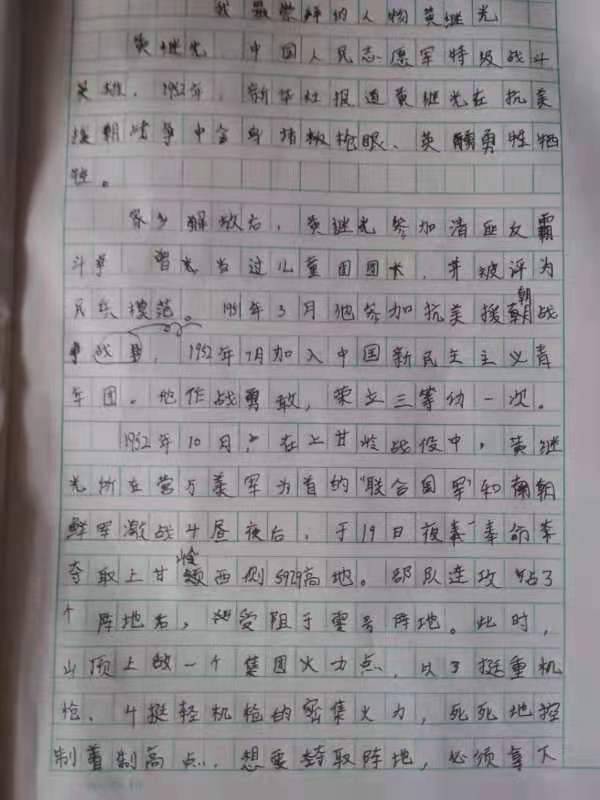 我最崇拜的人物黄继光
黄继光,中国人民志愿军特级战斗
英雄,1952年,新华社报道黄继光在抗美
援朝战争中舍身堵枪眼、英勇牺牲
牲。
家乡解放后,黄继光参加清匪反霸
斗争 曾 当过儿童团团长,并被评为
民兵模范。1951年3月他参加抗美援朝战
争 ,1952年7月加入中国新民主主义青
年团。他作战勇敢,荣立三等功一次。
1952年10月,在上甘岭战役中,黄继
光所在营与美军为首的“联合国军”和南朝
鲜军激战4昼夜后,于19日夜奉命奉
夺取上甘岭西侧597.9高地。部队连攻占3
个阵地后,受阻于零号阵地。此时,
山顶上敌一个集团火力点,以3挺重机
枪、4挺轻机枪的密集火力,死死地控
制着制高点,想要夺取阵地,必须拿下